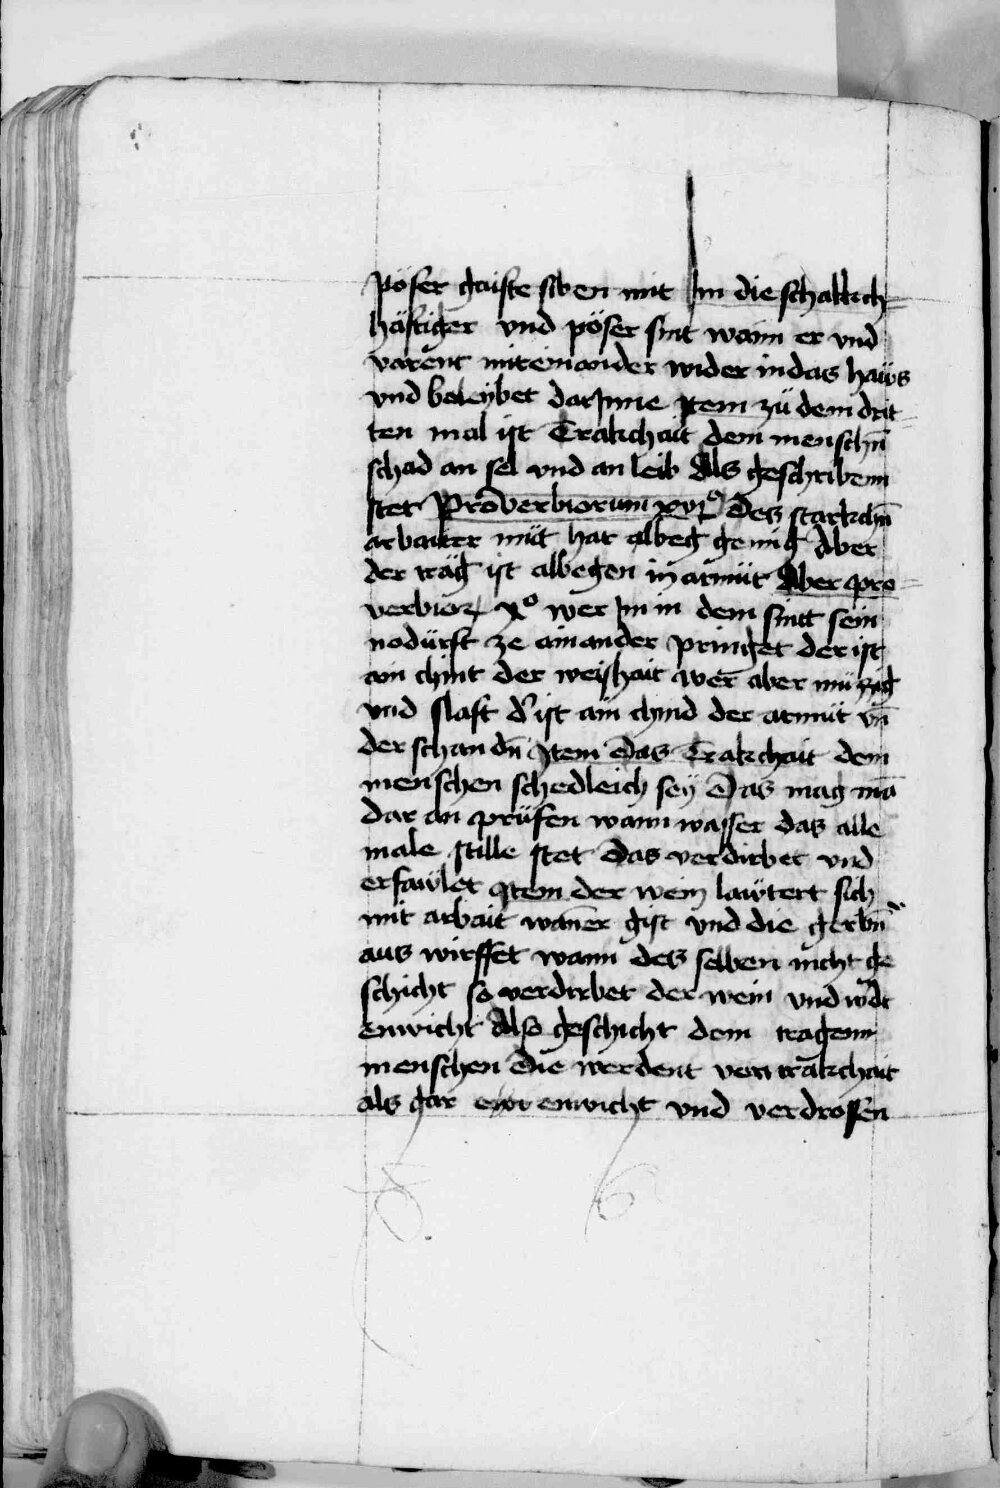 pöser gaiste siben mit Im die schalkch=
häftiger vnd pöser sint wann er vnd
varent miteinander wider in das haws
vnd beleybet darInne Item zü dem drit=
ten mal ist Trakchait dem menschn̄
schad an sel vnd an leib Als geschribenn
stet Prouerbiorum xviº Des starkchn̄
arbaiter müt hat albeg genüg Aber
der träg ist albegen in armüt Aber pro=
verbior xº wer Im in dem snitt sein
nodürft ze ainander pringet der ist
ain chint der weishait wer aber müzzig
vnd slaft d' ist ain chind der armüt vn̄
der schandn̄ Item Das Trakchait dem
menschen schedleich sey Das mag mā
dar an prüfen wann wasser das alle
male stille stet Das verdirbet vnd
erfawlet Item der wein lawtert sich
mit arbait wann er gist vnd die gerbn̄
aus wirffet wann des selben nicht ge
schicht so verdirbet der wein vnd wirdt
enwicht Also geschicht dem tragenn
menschen Die werdent von trakchait
als gar enwicht vnd verdrossen